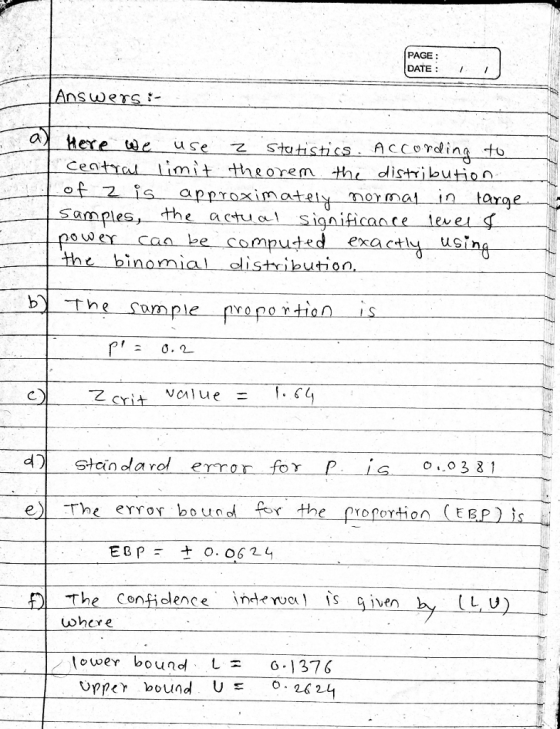 PAGE :
DATE : / /
Answers :-
a) Here we use z statistics. According to
central limit theorem the distribution
of z is approximately normal in large
samples, the actual significance level &
power can be computed exactly using
the binomial distribution.
b) The sample proportion is
p' = 0.2
c) Z crit value = 1.64
d) standard error for P. is 0.0381
e) The error bound for the proportion (EBP) is
EBP = ± 0.0624
f) The confidence interval is given by (L, U)
where
lower bound L = 0.1376
upper bound U = 0.2624